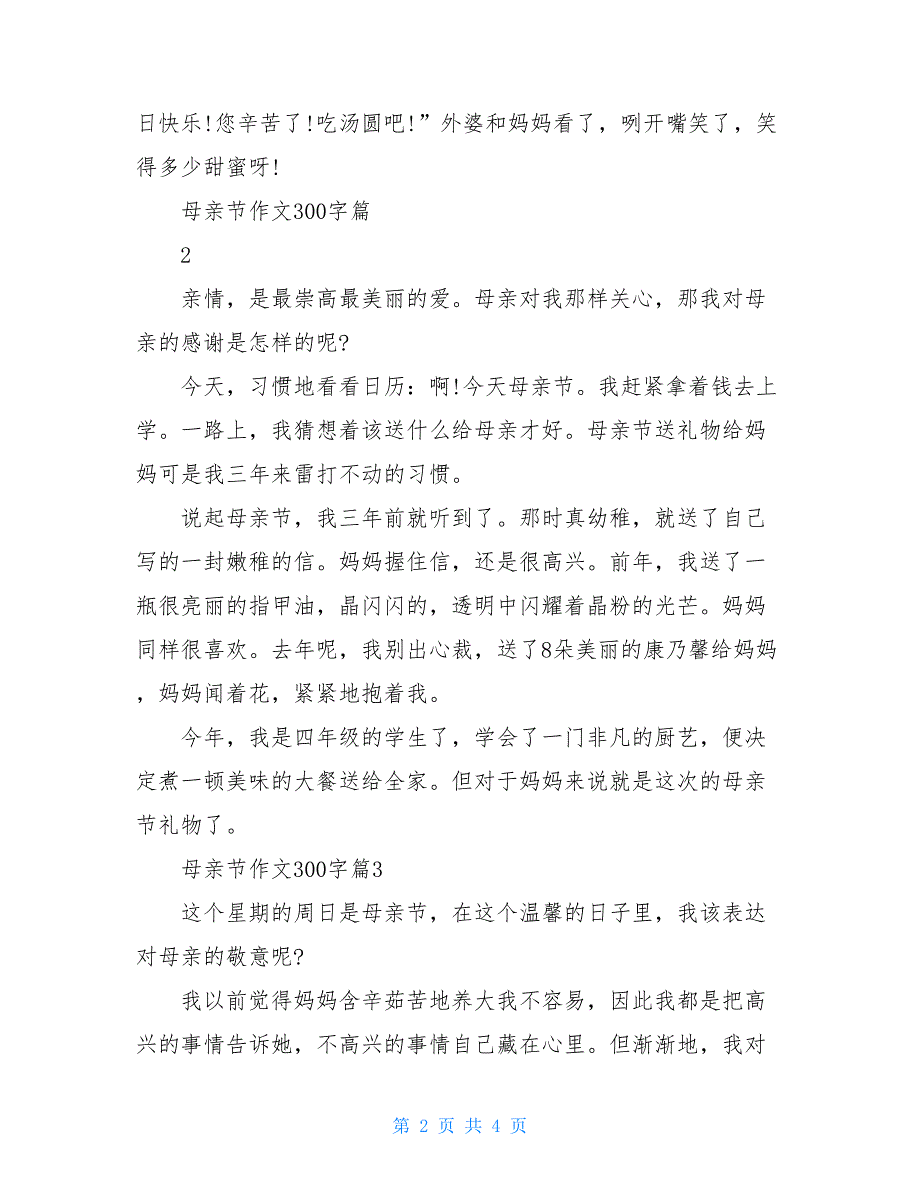 日快乐!您辛苦了!吃汤圆吧!”外婆和妈妈看了，咧开嘴笑了，笑
得多少甜蜜呀!
母亲节作文300字篇
2
亲情，是最崇高最美丽的爱。母亲对我那样关心，那我对母
亲的感谢是怎样的呢?
今天，习惯地看看日历：啊!今天母亲节。我赶紧拿着钱去上
学。一路上，我猜想着该送什么给母亲才好。母亲节送礼物给妈
妈可是我三年来雷打不动的习惯。
说起母亲节，我三年前就听到了。那时真幼稚，就送了自己
写的一封嫩稚的信。妈妈握住信，还是很高兴。前年，我送了一
瓶很亮丽的指甲油，晶闪闪的，透明中闪耀着晶粉的光芒。妈妈
同样很喜欢。去年呢，我别出心裁，送了8朵美丽的康乃馨给妈妈
，妈妈闻着花，紧紧地抱着我。
今年，我是四年级的学生了，学会了一门非凡的厨艺，便决
定煮一顿美味的大餐送给全家。但对于妈妈来说就是这次的母亲
节礼物了。
母亲节作文300字篇3
这个星期的周日是母亲节，在这个温馨的日子里，我该表达
对母亲的敬意呢?
我以前觉得妈妈含辛茹苦地养大我不容易，因此我都是把高
兴的事情告诉她，不高兴的事情自己藏在心里。但渐渐地，我对
第 2 页 共 4 页